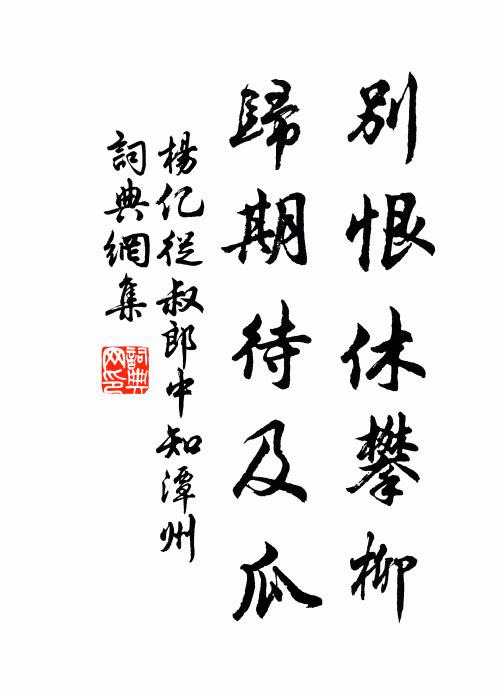 別恨休攀柳
歸期待及瓜
楊億從叔郎中知潭州
詞典網集
詞典网印